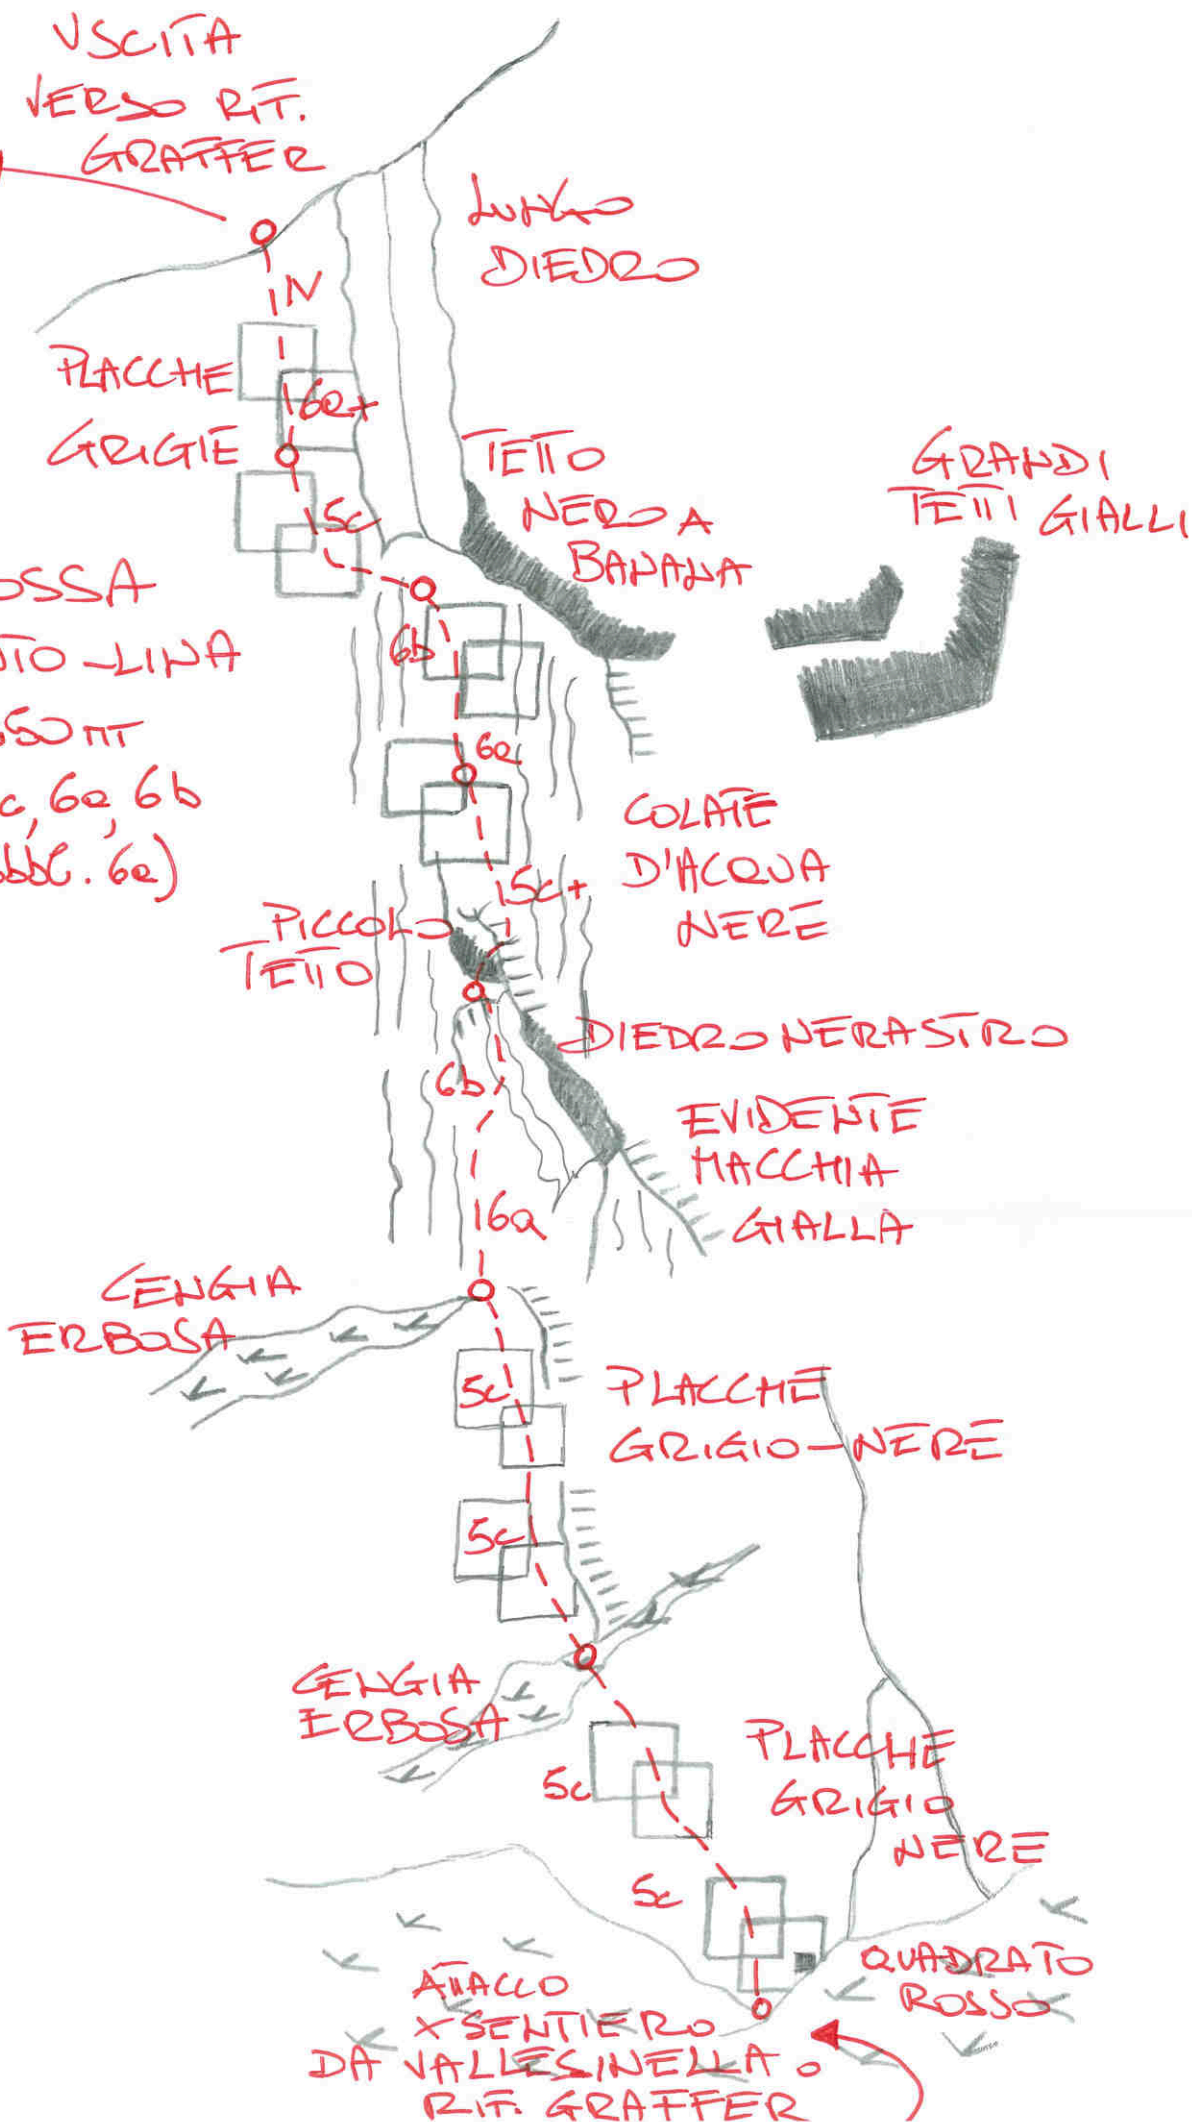 USCITA
VERSO RIF.
GRAFFER
LUNGO
DIEDRO
IV
PLACCHE
6a+
GRIGIE
TETTO
NERO A
BANANA
GRANDI
TETTI GIALLI
5c
OSSA
TO-LINA
50 MT
c, 6a, 6b
bbl. 6a)
6b
6a
COLATE
D'ACQUA
NERE
5c+
PICCOLO
TETTO
DIEDRO NERASTRO
6b
EVIDENTE
MACCHIA
GIALLA
6a
CENGIA
ERBOSA
5c
PLACCHE
GRIGIO-NERE
5c
CENGIA
ERBOSA
PLACCHE
GRIGIO
NERE
5c
5c
QUADRATO
ROSSO
ATTACCO
X SENTIERO
DA VALLESINELLA O
RIF. GRAFFER